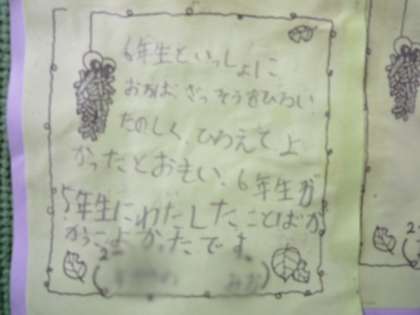 6年生といっしょに
おちば、ざっそうをひろい、
たのしく、ひろえてよ
かったとおもい、6年生が
5年生にわたしたことばが
かっこよかったです。